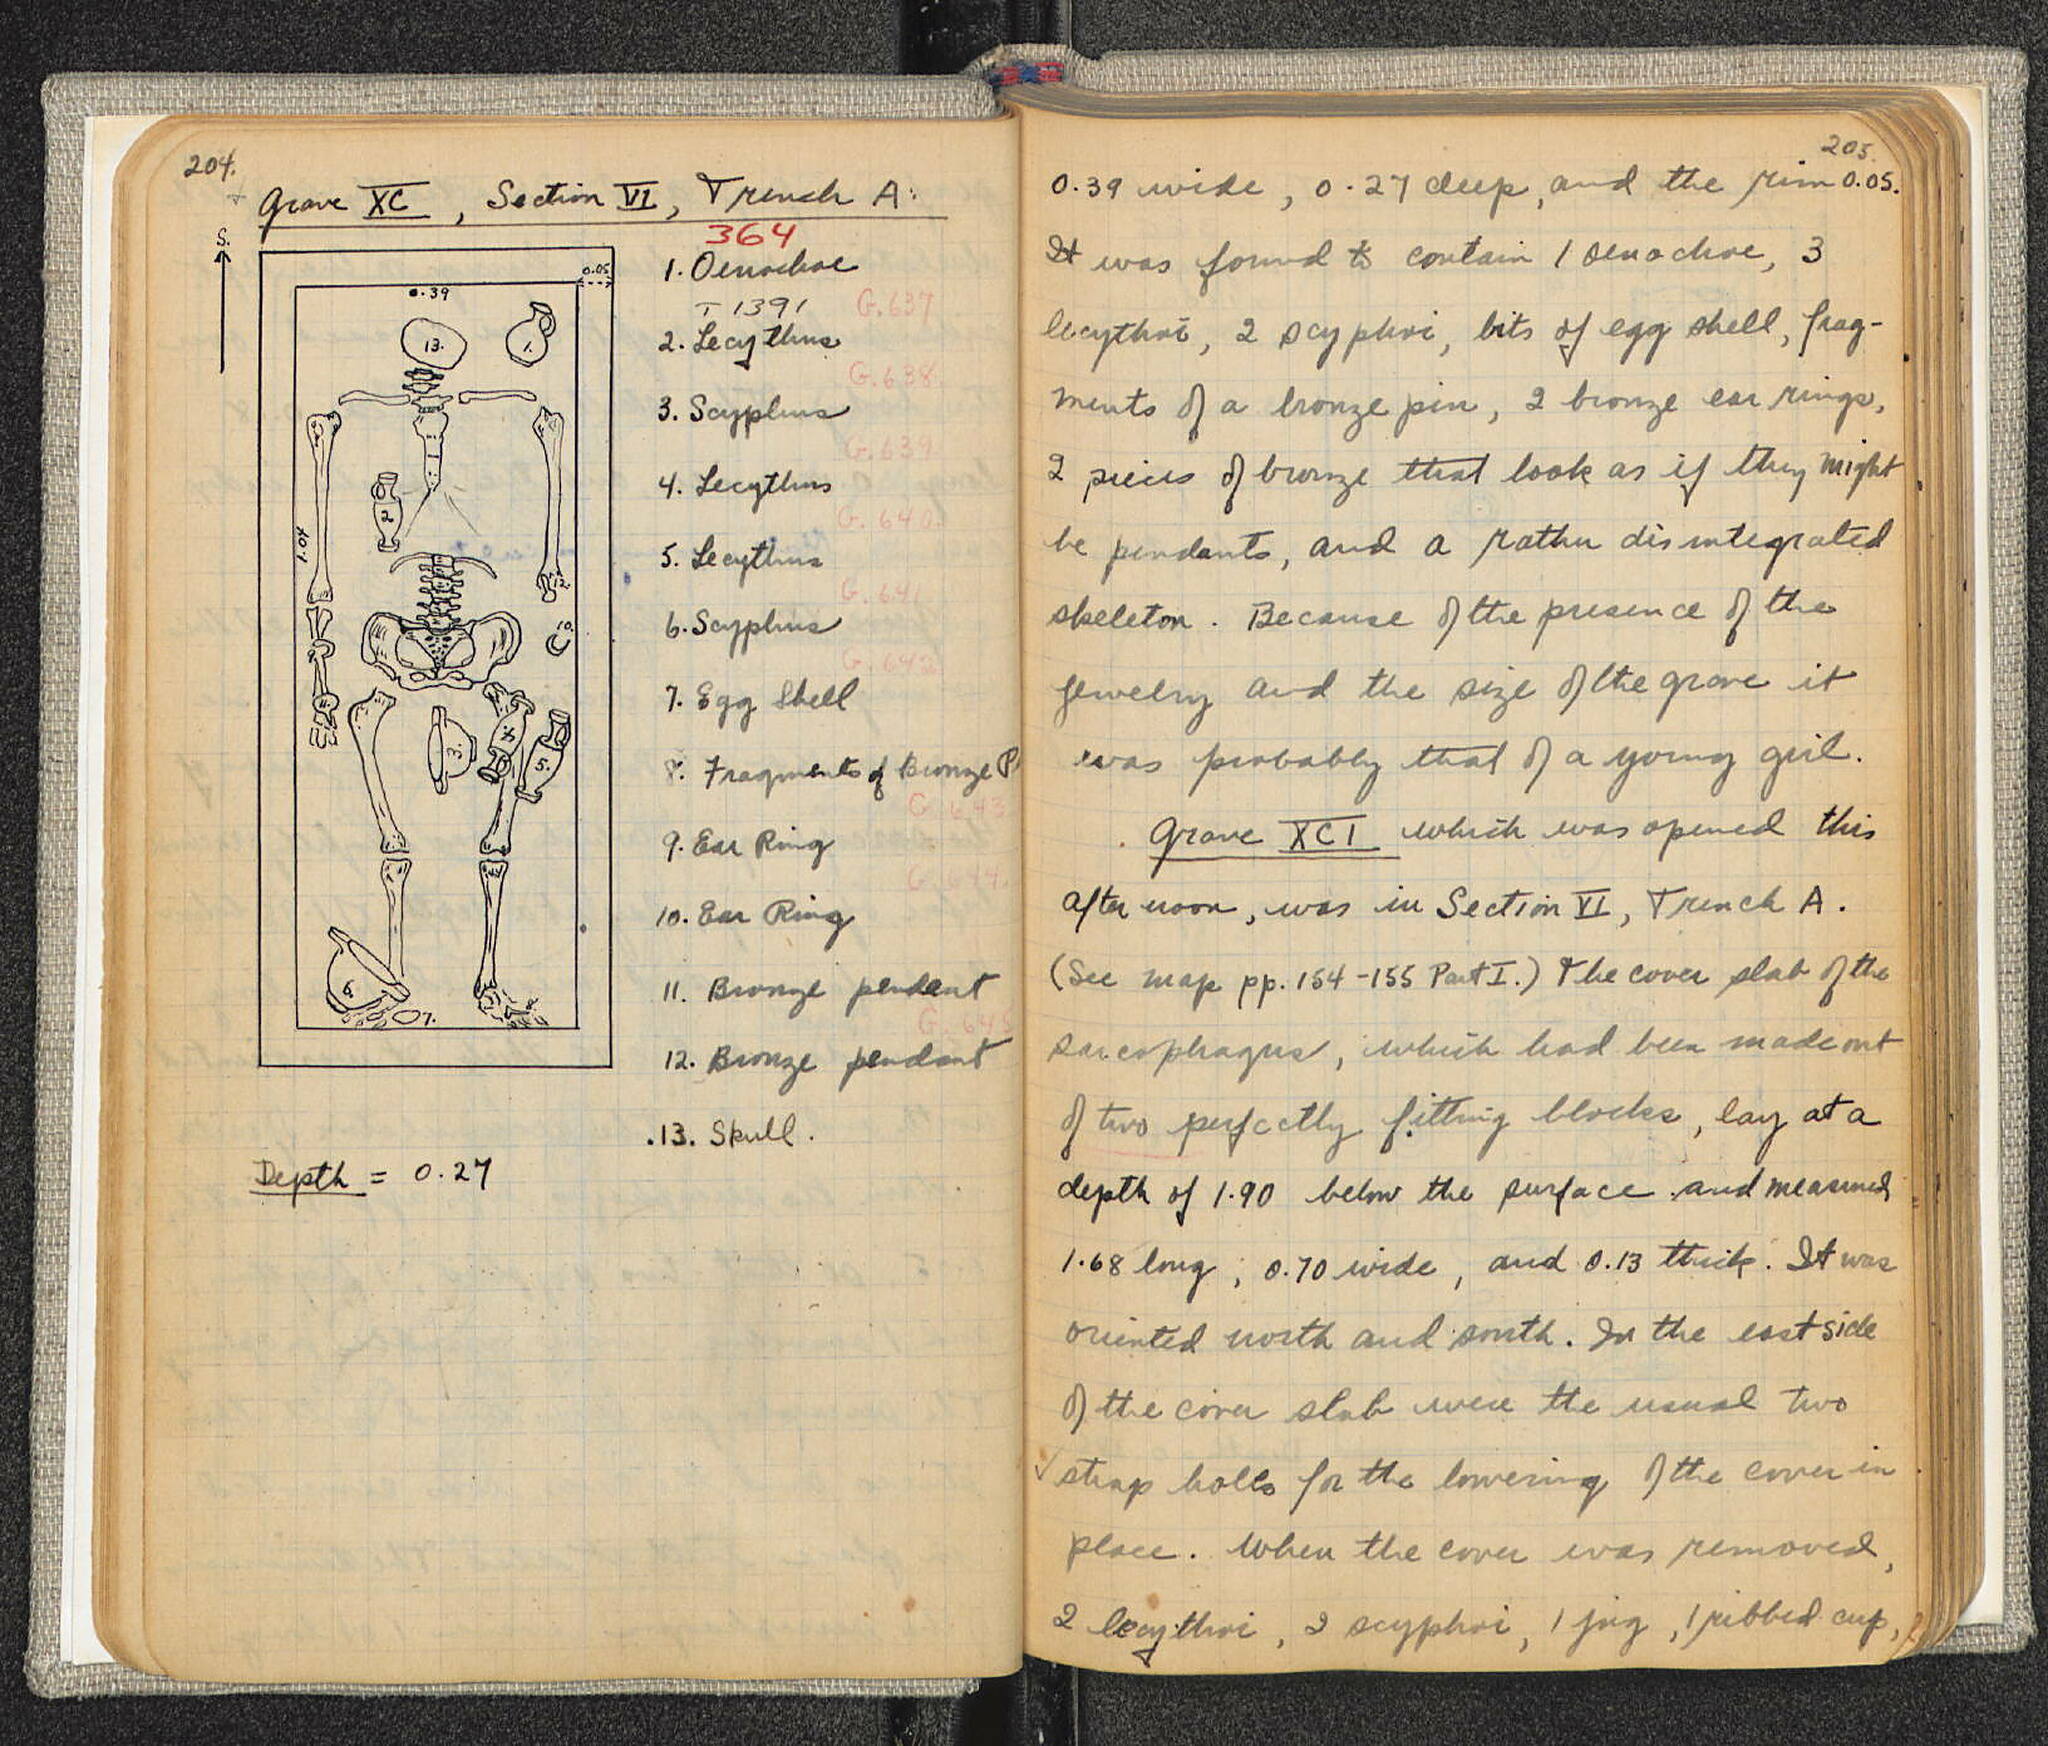 204.
Grave XC, Section VI, Trench A:
364
S.
0.05
0.39
13.
1.
2
1.04
12.
10.
11.
3.
4.
5.
6.
7.
8.
1. Oenochoe
T 1391
G.637
2. Lecythus
G.638.
3. Scyphus
G.639
4. Lecythus
G.640.
5. Lecythus
G.641
6. Scyphus
G.642
7. Egg Shell
8. Fragments of Bronze P
G.643
9. Ear Ring
G.644.
10. Ear Ring
11. Bronze pendent
G.645
12. Bronze pendant
13. Skull.
Depth = 0.27
205.
0.39 wide, 0.27 deep, and the rim 0.05.
It was found to contain 1 oenochoe, 3
lecythoi, 2 scyphoi, bits of egg shell, frag-
ments of a bronze pin, 2 bronze ear rings,
2 pieces of bronze that look as if they might
be pendants, and a rather disintegrated
skeleton. Because of the presence of the
jewelry and the size of the grave it
was probably that of a young girl.
Grave XCI which was opened this
afternoon, was in Section VI, Trench A.
(See map pp. 154-155 Part I.) The cover slab of the
sarcophagus, which had been made out
of two perfectly fitting blocks, lay at a
depth of 1.90 below the surface and measured
1.68 long, 0.70 wide, and 0.13 thick. It was
oriented north and south. In the east side
of the cover slab were the usual two
✓ strap holes for the lowering of the cover in
place. When the cover was removed,
2 lecythoi, 2 scyphoi, 1 jug, 1 ribbed cup,